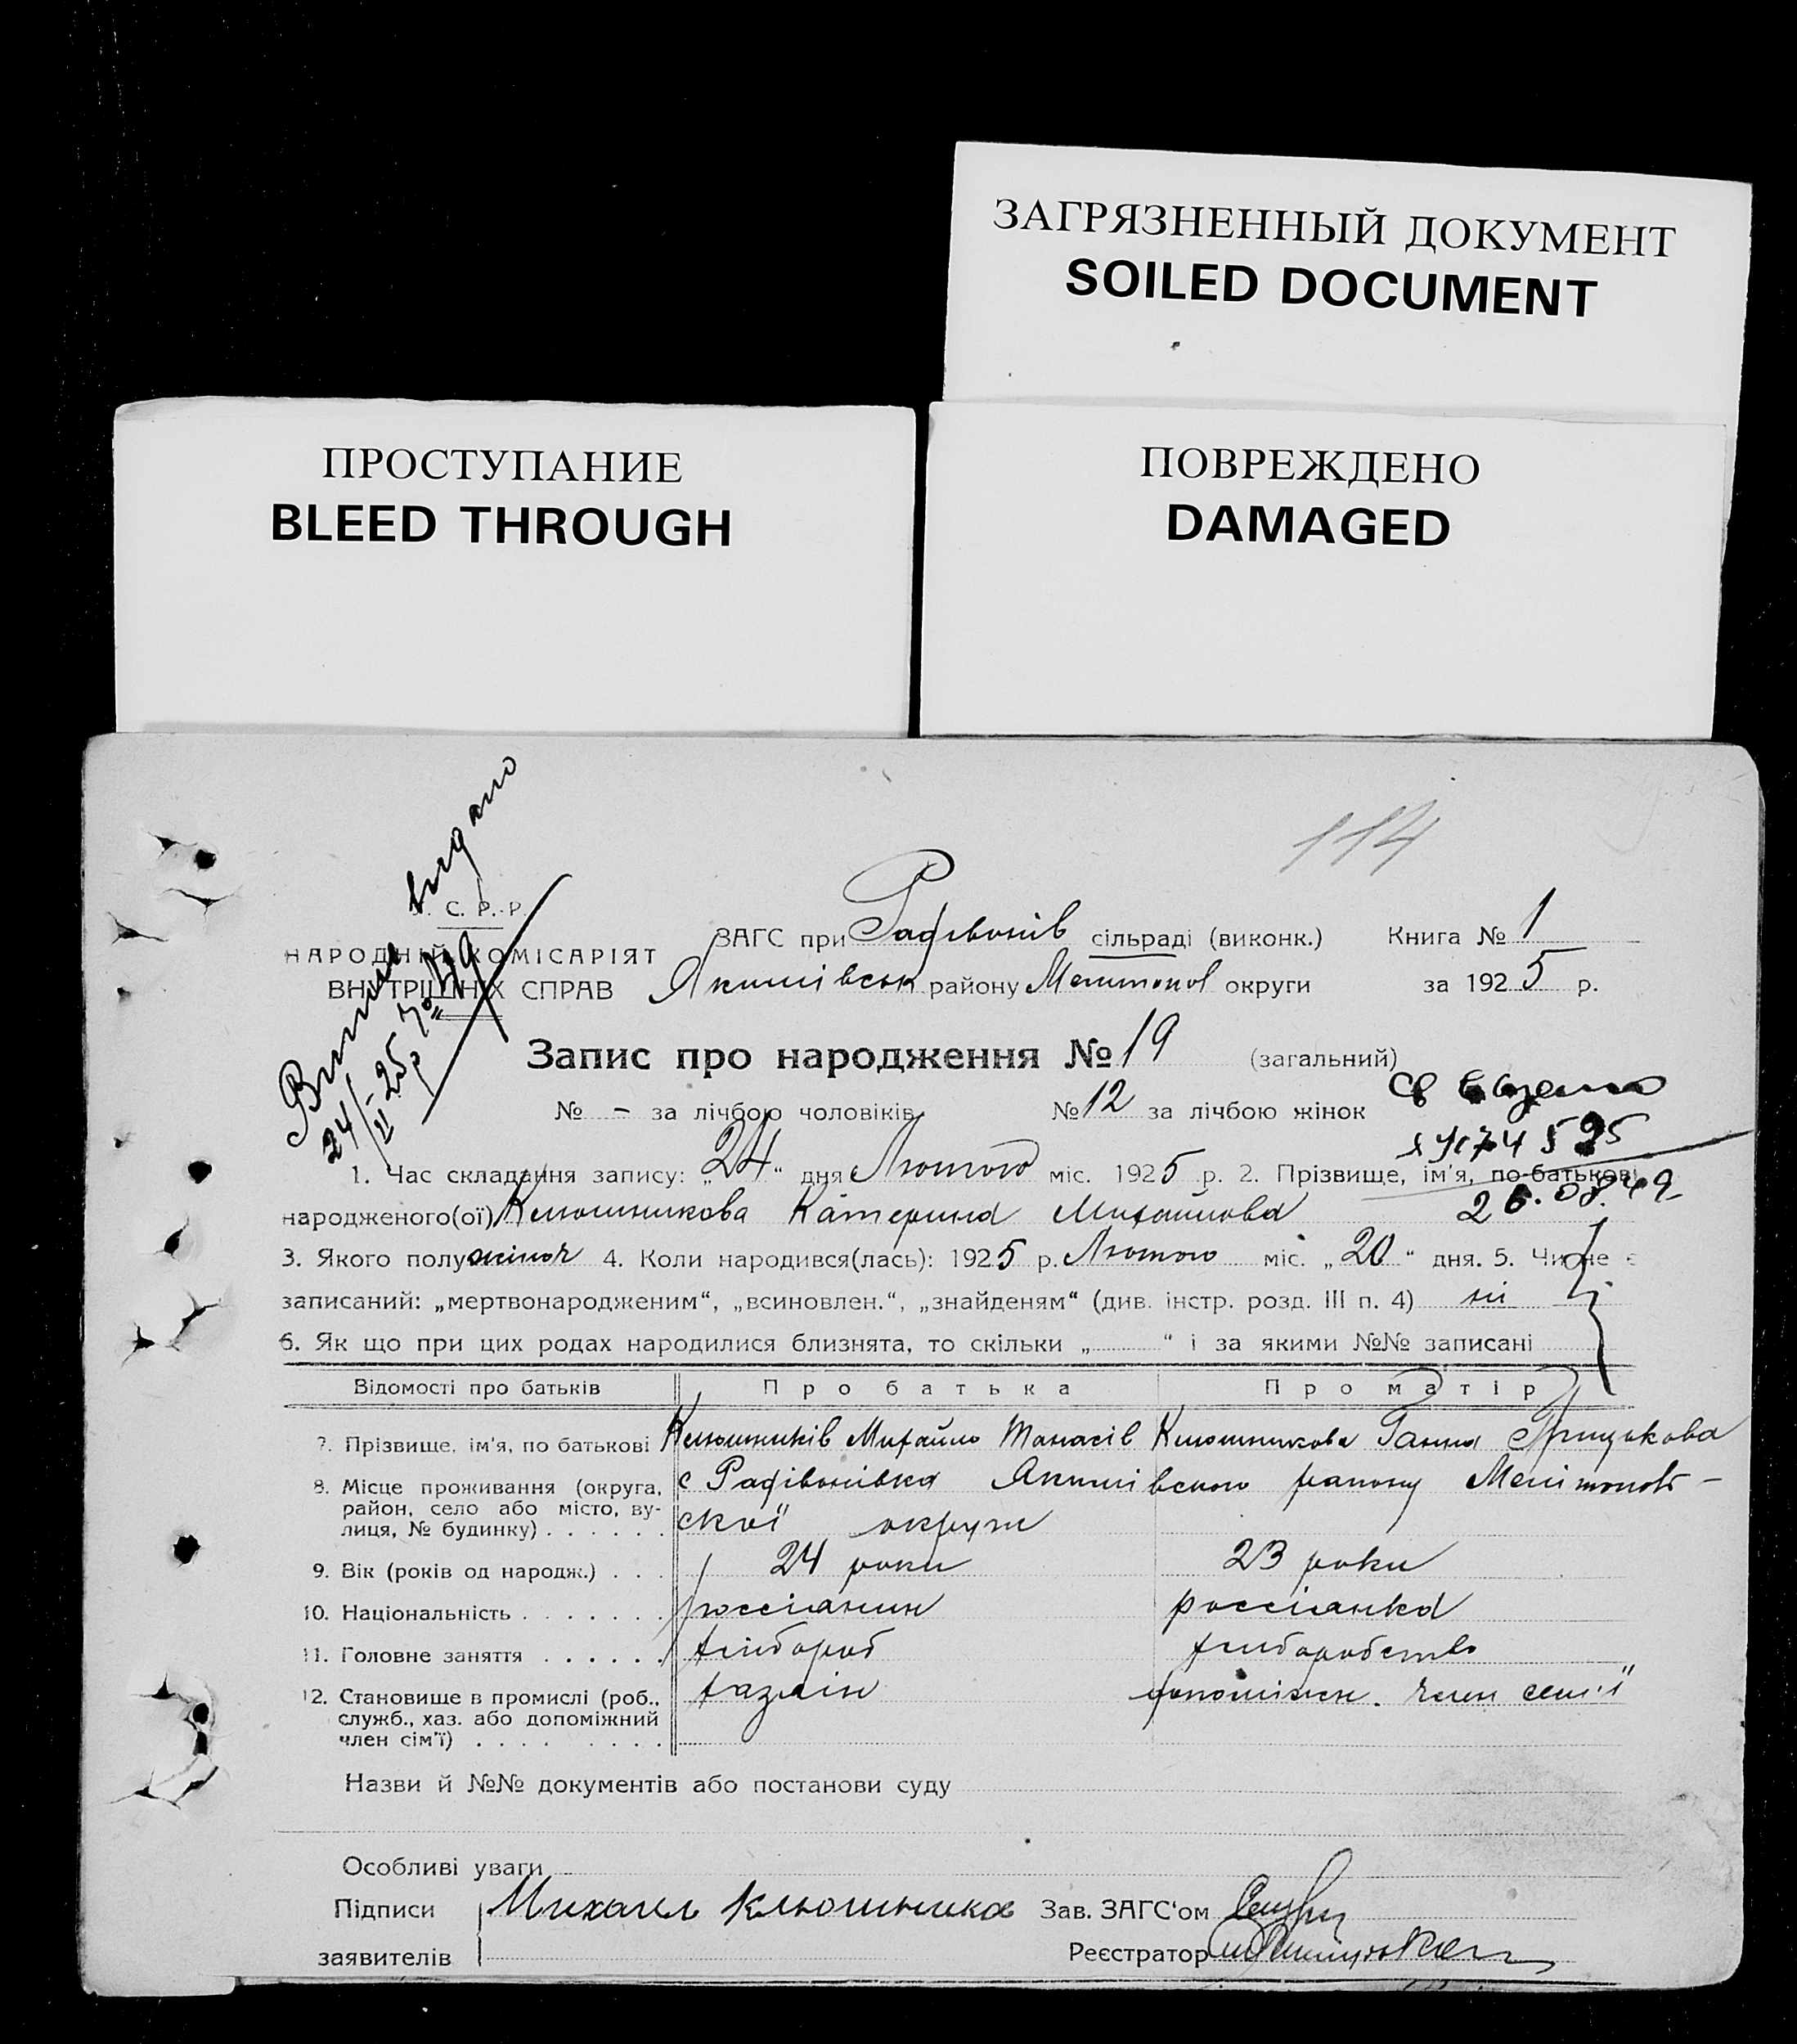 ЗАГРЯЗНЕННЫЙ ДОКУМЕНТ
SOILED DOCUMENT
ПРОСТУПАНИЕ
BLEED THROUGH
ПОВРЕЖДЕНО
DAMAGED
114
Виписъ видано
24/II-25р. №19
С. Р. Р.
НАРОДНІЙ КОМІСАРІЯТ
ВНУТРІШНІХ СПРАВ
ЗАГС при Радівонів сільраді (виконк.) Книга № 1
Якимівськ району Мелитопол округи за 1925 р.
Запис про народження № 19 (загальний)
№ - за лічбою чоловіків № 12 за лічбою жінок
1. Час складання запису: „24“ дня Лютого міс. 1925 р. 2. Прізвище, ім'я, по-батькові
народженого(ої) Клюшникова Катерина Михайлова
26.08.49
3. Якого полу жіноч 4. Коли народився(лась): 1925 р. Лютого міс. „20“ дня. 5. Чи не є
записаний: „мертвонародженим“, „всиновлен.“, „знайденям“ (див. інстр. розд. III п. 4) ні
6. Як що при цих родах народилися близнята, то скільки „ “ і за якими №№ записані
Відомості про батьків Про батька Про матір
7. Прізвище, ім'я, по батькові Клюшників Михайло Танасів Клюшникова Ганна Грицькова
8. Місце проживання (округа, район, село або місто, вулиця, № будинку) с Радівонівка Якимівського району Мелітополь-
ської округи
9. Вік (років од народж.) 24 роки 23 роки
10. Національність россіянин россіянка
11. Головне заняття хлібороб хлібопробство
12. Становище в промислі (роб., служб., хаз. або допоміжний член сім'ї) хазяін допоміжн. член семˑї
Назви й №№ документів або постанови суду
Особливі уваги
Підписи Михаил Клюшника Зав. ЗАГС'ом
заявителів Реєстратор